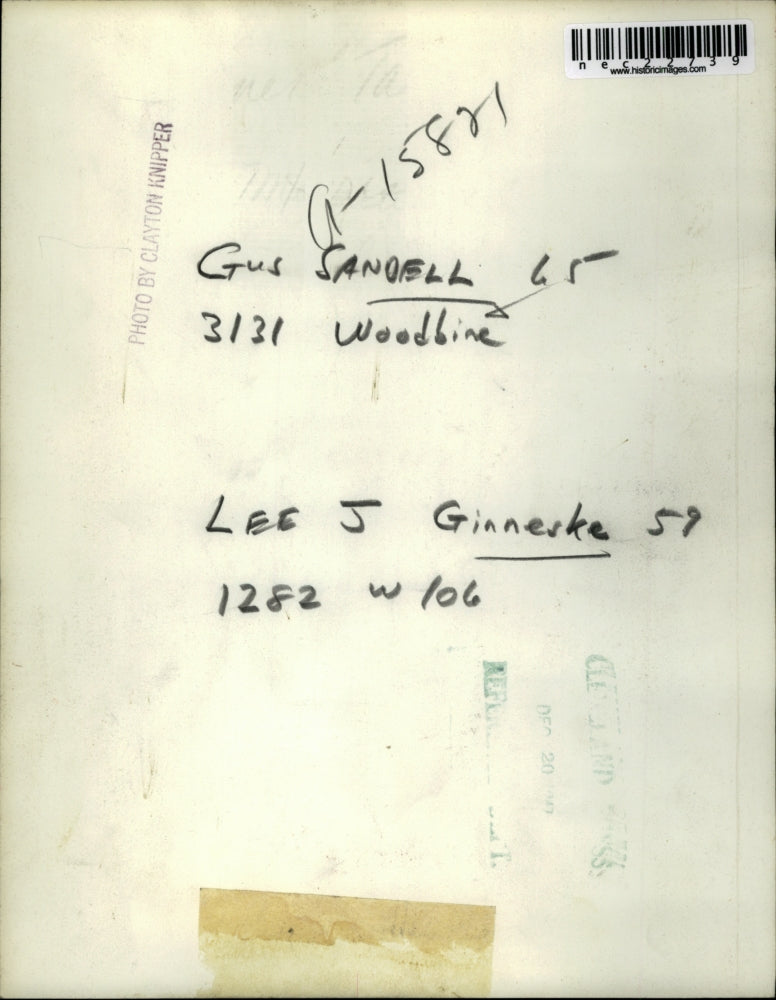 nec22739
www.historicimages.com
PHOTO BY CLAYTON KNIPPER
A-15821
GUS SANDELL 65
3131 Woodbine
LEE J Ginneske 59
1282 W 106
DEC 20